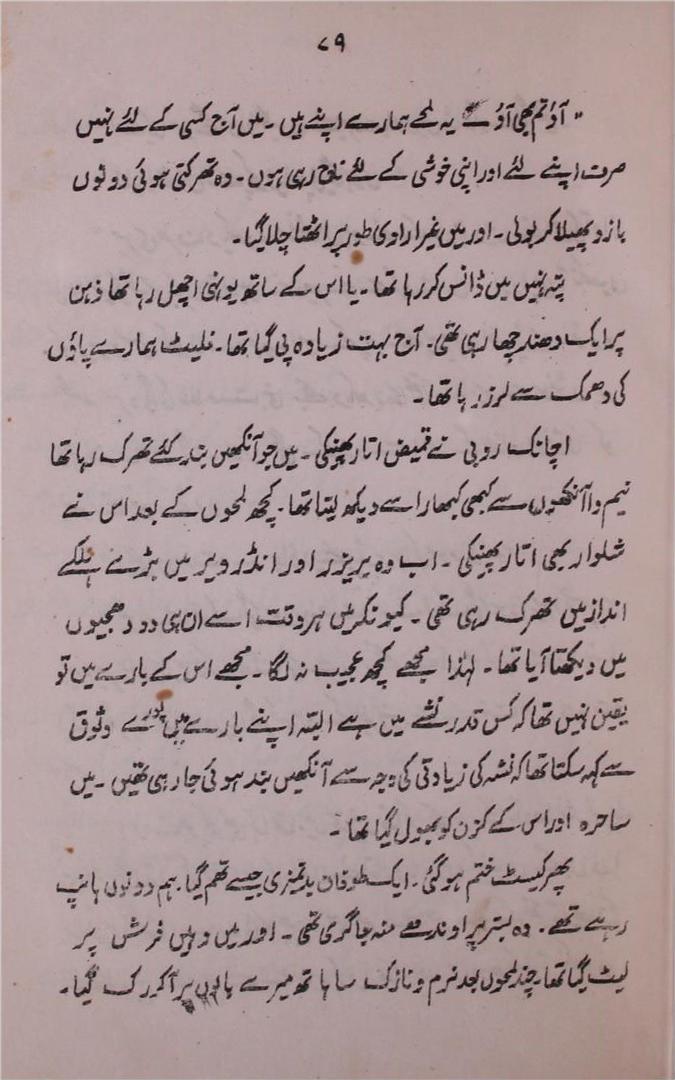 ۷۹
" آؤ تم بھی آؤ یہ لمحے ہمارے اپنے ہیں ۔ میں آج کسی کے لئے نہیں
صرف اپنے لئے اور اپنی خوشی کے لئے ناچ رہی ہوں ۔ وہ تھرکتی ہوئی دونوں
بازو پھیلا کر بولی ۔ اور میں غیر ارادی طور پر اٹھتا چلا گیا ۔
پتہ نہیں میں ڈانس کر رہا تھا ۔ یا اس کے ساتھ یونہی اچھل رہا تھا ذہن
پر ایک دھند چھا رہی تھی ۔ آج بہت زیادہ پی گیا تھا ۔ فلیٹ ہمارے پاؤں
کی دھمک سے لرز رہا تھا ۔
اچانک روبی نے قمیض اتار پھینکی ۔ میں جو آنکھیں بند کئے تھرک رہا تھا
نیم وا آنکھوں سے کبھی کبھار اسے دیکھ لیتا تھا ۔ کچھ لمحوں کے بعد اس نے
شلوار بھی اتار پھینکی ۔ اب وہ بریزر اور انڈرویر میں بڑے ہلکے
انداز میں تھرک رہی تھی ۔ کیونکہ میں ہر وقت اسے ان ہی دو دھجیوں
میں دیکھتا آیا تھا ۔ لہٰذا مجھے کچھ عجیب نہ لگا ۔ مجھے اس کے بارے میں تو
یقین نہیں تھا کہ کس قدر نشے میں ہے البتہ اپنے بارے میں پورے وثوق
سے کہہ سکتا تھا کہ نشہ کی زیادتی کی وجہ سے آنکھیں بند ہوئی جا رہی تھیں ۔ میں
ساحرہ اور اس کے کزن کو بھول گیا تھا ۔
پھر کیسٹ ختم ہو گئی ۔ ایک طوفان بدتمیزی جیسے تھم گیا ۔ ہم دونوں ہانپ
رہے تھے ۔ وہ بستر پر اوندھے منہ جا گری تھی ۔ اور میں وہیں فرش پر
لیٹ گیا تھا ۔ چند لمحوں بعد نرم و نازک سا ہاتھ میرے بالوں پر آ کر رک گیا ۔